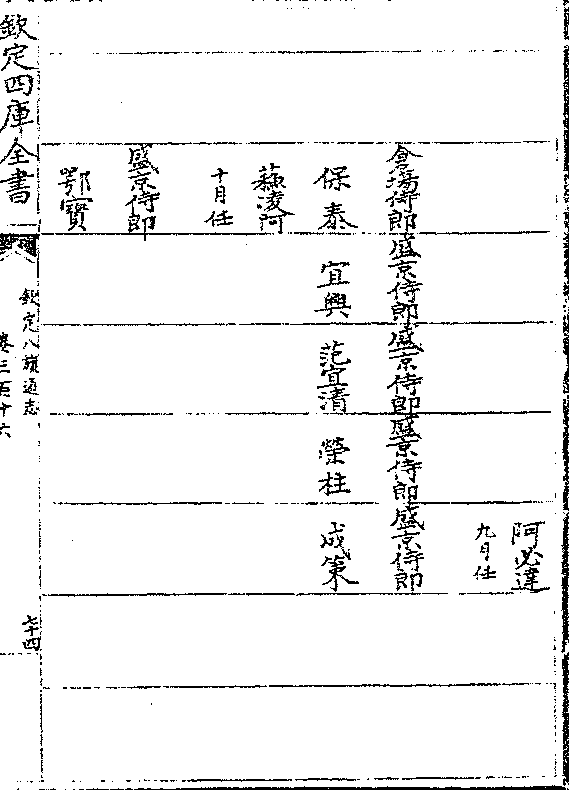 阿必達
九月任
倉場侍郎
盛京侍郎
盛京侍郎
盛京侍郎
盛京侍郎
保泰
宜興
范宜清
榮柱
成策
蘇淩阿
十月任
盛京侍郎
鄂寶
欽定四庫全書
欽定八旗通志
卷三百十六
七十四